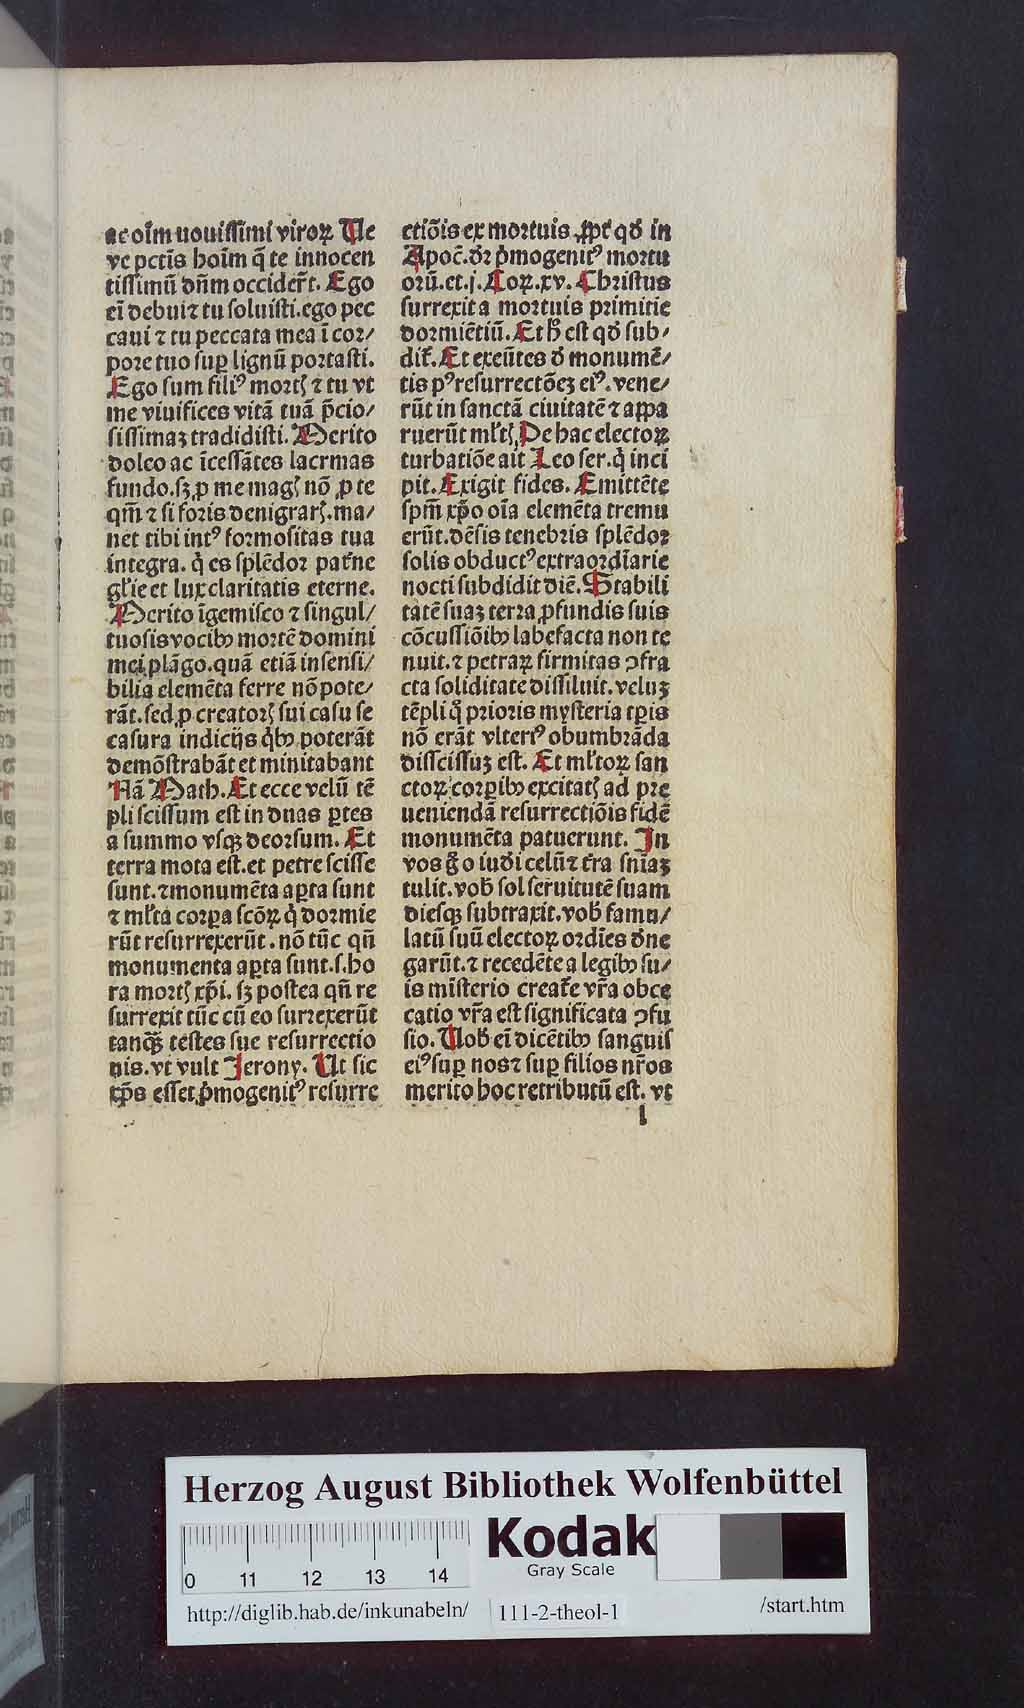 ac oīm nouissimi viroꝝ Ue
ve pctīs hoīm q̄ te innocen
tissimū dn̄m occider̄t. Ego
ei debui ⁊ tu soluisti. ego pec
caui ⁊ tu peccata mea ī cor/
pore tuo suꝑ lignū portasti.
Ego sum filiꝰ mortꝭ ⁊ tu vt
me viuifices vitā tuā p̄cio/
sissimaꝫ tradidisti. Merito
doleo ac īcessātes lacrmas
fundo. sꝫ ꝓ me magꝭ nō ꝓ te
qm̄ ⁊ si foris denigrarꝭ. ma/
net tibi intꝰ formositas tua
integra. q̇ es splēdor pat̄ne
gl̄ie et lux claritatis eterne.
Merito īgemisco ⁊ singul/
tuosis vocibꝰ mortē domini
mei plāgo. quā etiā insensi/
bilia elemēta ferre nō pote/
rāt. sed ꝓ creatorꝭ sui casu se
casura indicijs q̇bꝰ poterāt
demōstrabāt et minitabant
Nā Math. Et ecce velū tē
pli scissum est in duas ꝑtes
a summo vsqꝫ deorsum. Et
terra mota est. et petre scisse
sunt. ⁊ monumēta aꝑta sunt
⁊ ml̄ta corꝑa scōꝝ q̇ dormie
rūt resurrexerūt. nō tūc qn̄
monumenta aꝑta sunt. s. ho
ra mortꝭ xp̄i. sꝫ postea qn̄ re
surrexit tūc cū eo surrexerūt
tanqꝫ̄ testes sue resurrectio
nis. vt vult Jerony. Ut sic
xp̄s esset p̄mogenitꝰ resurre
ctiōis ex mortuis ꝓpt̄ qđ in
Apoc̄. dr̄ p̄mogenitꝰ mortu
orū. et. j. Coꝝ. xv. Christus
surrexit a mortuis primitie
dormiētiū. Et h̄ est qđ sub/
dit̄. Et exeūtes đ monumē/
tis pꝰ resurrectōeꝫ eiꝰ. vene/
rūt in sanctā ciuitatē ⁊ appa
ruerūt ml̄tꝭ. De hac electoꝝ
turbatiōe ait Leo ser. q̇ inci
pit. Exigit fides. Emittēte
spm̄ xp̄o oīa elemēta tremu
erūt. dēsis tenebris splēdor
solis obductꝰ extraordīarie
nocti subdidit diē. Stabili
tatē suaꝫ terra ꝓfundis suis
cōcussiōibꝰ labefacta non te
nuit. ⁊ petraꝝ firmitas ꝯfra
cta soliditate dissiluit. veluꝫ
tēpli q̊ prioris mysteria tꝑis
nō erāt vlteriꝰ obumbrāda
disscissuꝫ est. Et ml̄toꝝ san
ctoꝝ corꝑibꝰ excitatꝭ ad pre
ueniendā resurrectiōis fidē
monumēta patuerunt. In
vos g̊ o iuđi celū ⁊ t̄ra sn̄iaꝫ
tulit. vob̄ sol seruitutē suam
diesqꝫ subtraxit. vob̄ famu/
latū suū electoꝝ ordīes đne
garūt. ⁊ recedēte a legibꝰ su/
is mīsterio creat̄e vr̄a obce
catio vr̄a est significata ꝯfu
sio. Uob̄ eī dicētibꝰ sanguis
eiꝰ suꝑ nos ⁊ suꝑ filios nr̄os
merito hoc retributū est. vt
l
Herzog August Bibliothek Wolfenbüttel
Kodak
Gray Scale
0 11 12 13 14
http://diglib.hab.de/inkunabeln/ 111-2-theol-1 /start.htm